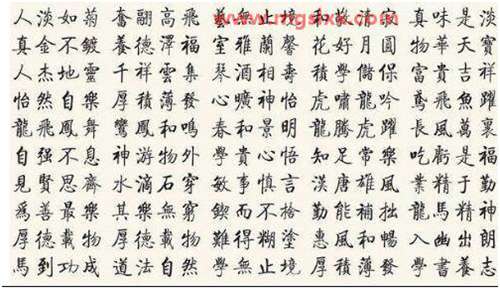 人淡如菊 奮翮高飛 藝無止境 和敬清寂 真味是淡
www.mgslxx.com
真金不鍍 養德澤福 室雅蘭馨 花好月圓 物華天寶
人杰地靈 千祥雲集 琴酒相壽 積學儲保 富貴吉祥
怡然自樂 厚積薄發 心曠神怡 虎嘯龍吟 鳶飛魚躍
龍飛鳳舞 鸞鳳和鳴 春和景明 龍騰虎躍 長風萬裏
自强不息 神游物外 學貴心悟 知足常樂 吃虧是福
見賢思齊 水滴石穿 敏事慎言 漢唐雄風 業精于勤
爲善最樂 其樂無窮 鍥而不捨 勤能補拙 龍馬精神
厚德載物 厚德載物 難得糊塗 惠風和暢 入幽出朗
馬到功成 道法自然 學無止境 厚積薄發 學書養志